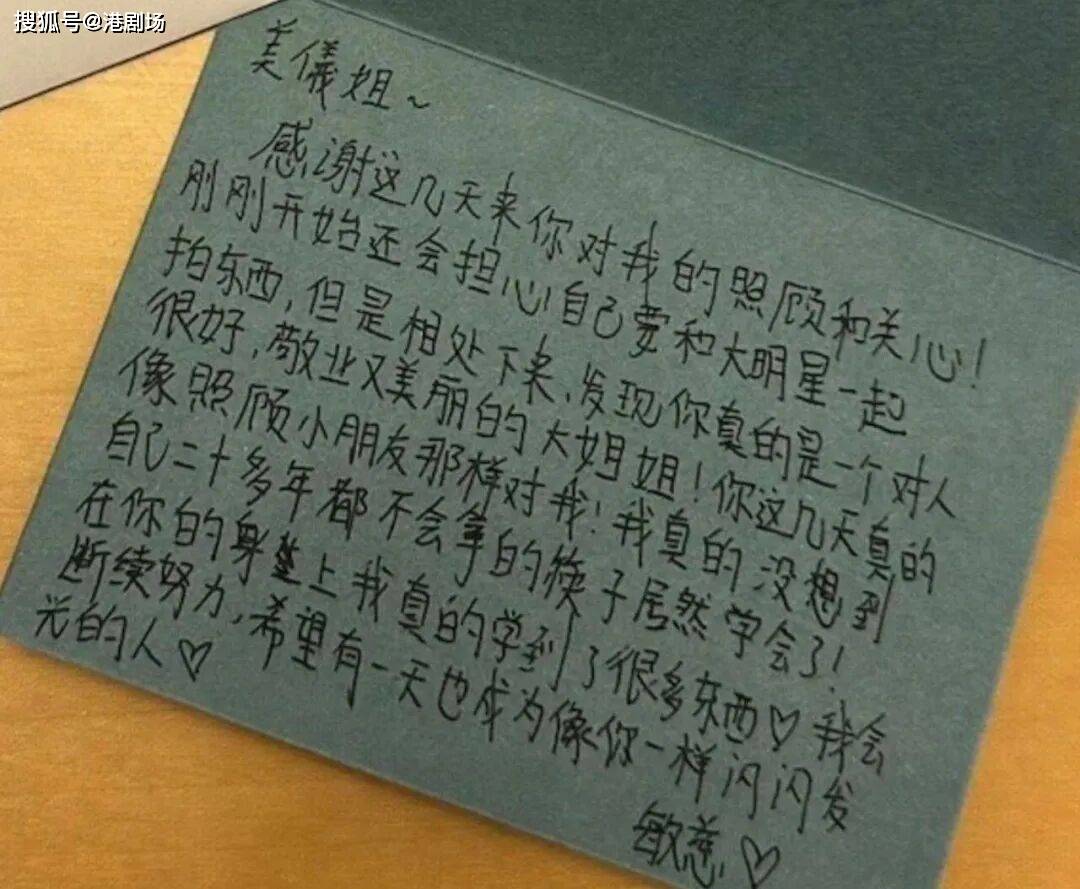 搜狐号@港剧场
美儀姐~
感谢这几天来你对我的照顾和关心!
刚刚开始还会担心自己要和大明星一起
拍东西,但是相处下来、发现你真的是一个对人
很好,敬业又美丽的大姐姐!你这几天真的
像照顾小朋友那样对我!我真的没想到
自己二十多年都不会拿的筷子居然学会了!
在你的身上我真的学到了很多东西♡我会
断续努力,希望有一天也成为像你一样闪闪发
光的人♡
敏慈♡